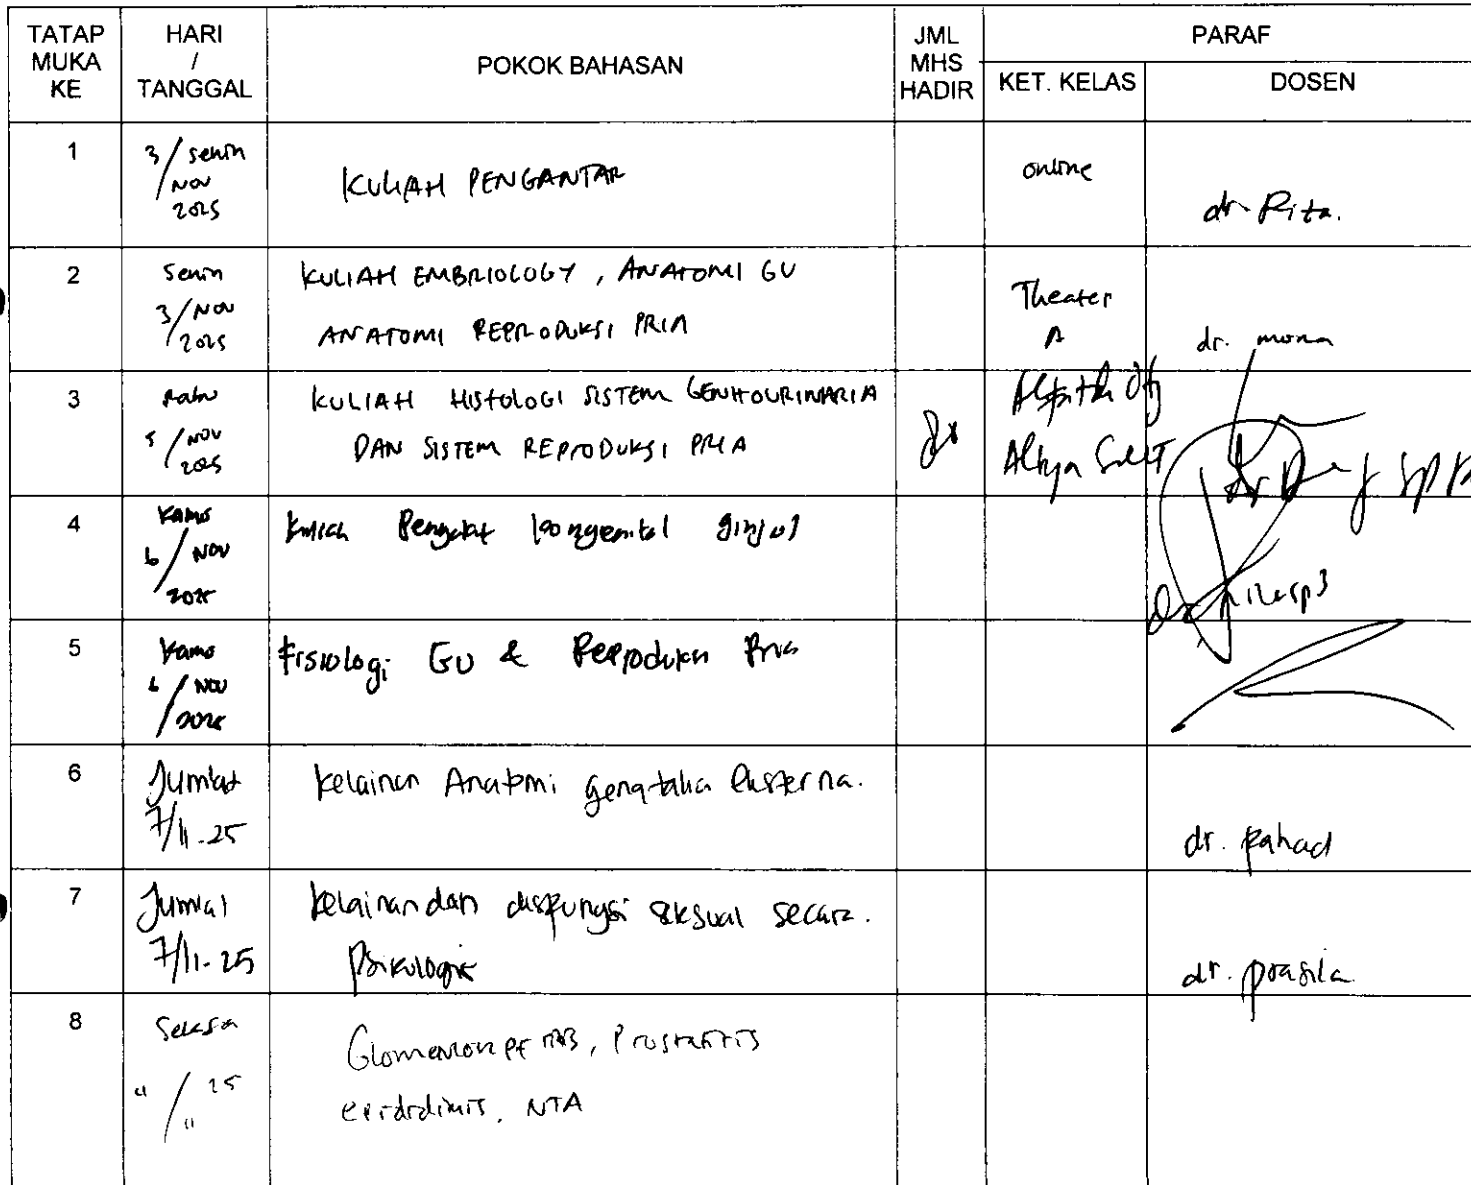 TATAP MUKA KE
HARI / TANGGAL
POKOK BAHASAN
JML MHS HADIR
PARAF
KET. KELAS
DOSEN
1
3/senin
NOV
2025
KULIAH PENGANTAR
online
dr. Rita.
2
Senin
3/NOV
2025
KULIAH EMBRIOLOGY, ANATOMI GU
ANATOMI REPRODUKSI PRIA
Theater
A
dr. mona
3
Rabu
5/NOV
2025
KULIAH HISTOLOGI SISTEM GENITOURINARIA
DAN SISTEM REPRODUKSI PRIA
4
Kamis
6/NOV
2025
Kuliah Penyakit kongenital ginjal
5
Kamis
6/NOV
2025
Fisiologi GU & Reproduksi Pria
6
Jumlat
7/11-25
Kelainan Anatomi genetalia Eksterna.
dr. Rahad
7
Jumlat
7/11-25
Kelainan dan disfungsi seksual secara.
Psikologik
dr. prasila
8
Selasa
11/11 25
, Prostatitis
, NTA